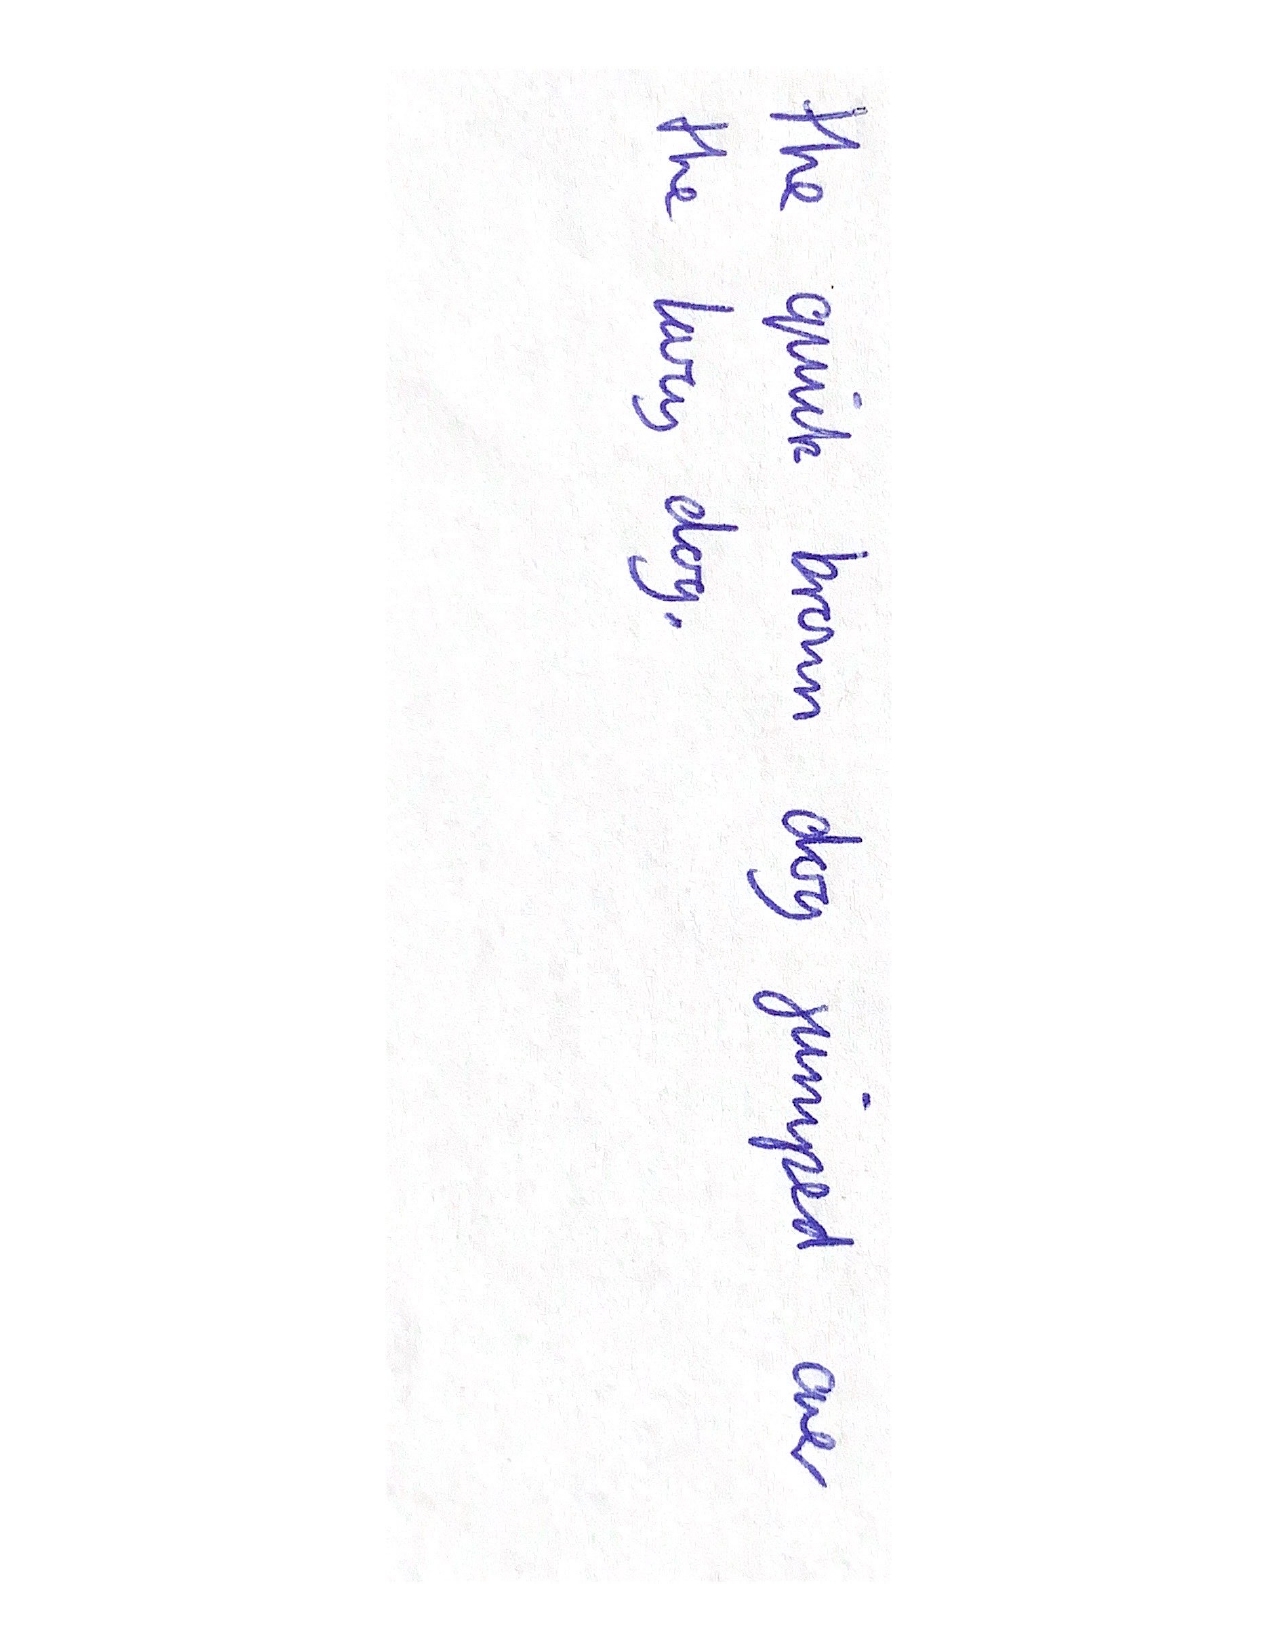 the quick brown dog jumped over
the lazy dog.